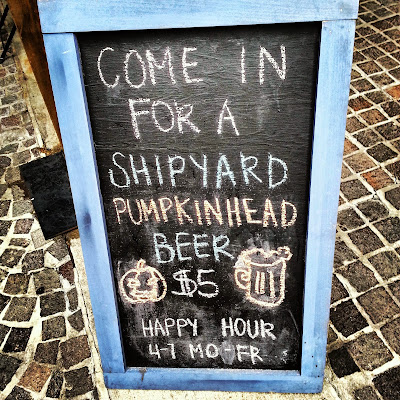 COME IN
FOR A
SHIPYARD
PUMPKINHEAD
BEER
$5
HAPPY HOUR
4-7 MO-FR